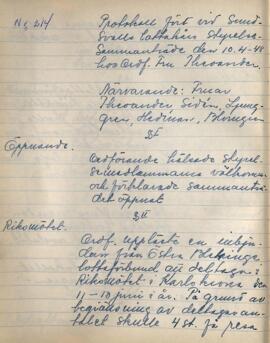 N: 214
Protokoll fört vid Sund-
svalls lottakårs Styrelse-
Sammanträde den 10.4-48
hos Ordf. Fru Theoander.
Närvarande: Fruar
Theoander Sidén, Ljung-
gren, Hedman,
§ I
Öppnande.
Ordförande hälsade Styrel-
seledamöterna välkomna
och förklarade sammanträ-
det öppnat
§ II
Riksmötet.
Ordf. uppläste en inbju-
dan från Östra Blekinge
lottaförbund att deltaga i
Riksmötet i Karlskrona den
11-10 juni i år. På grund av
begränsning av deltagaran-
talet skulle 4 st. få resa